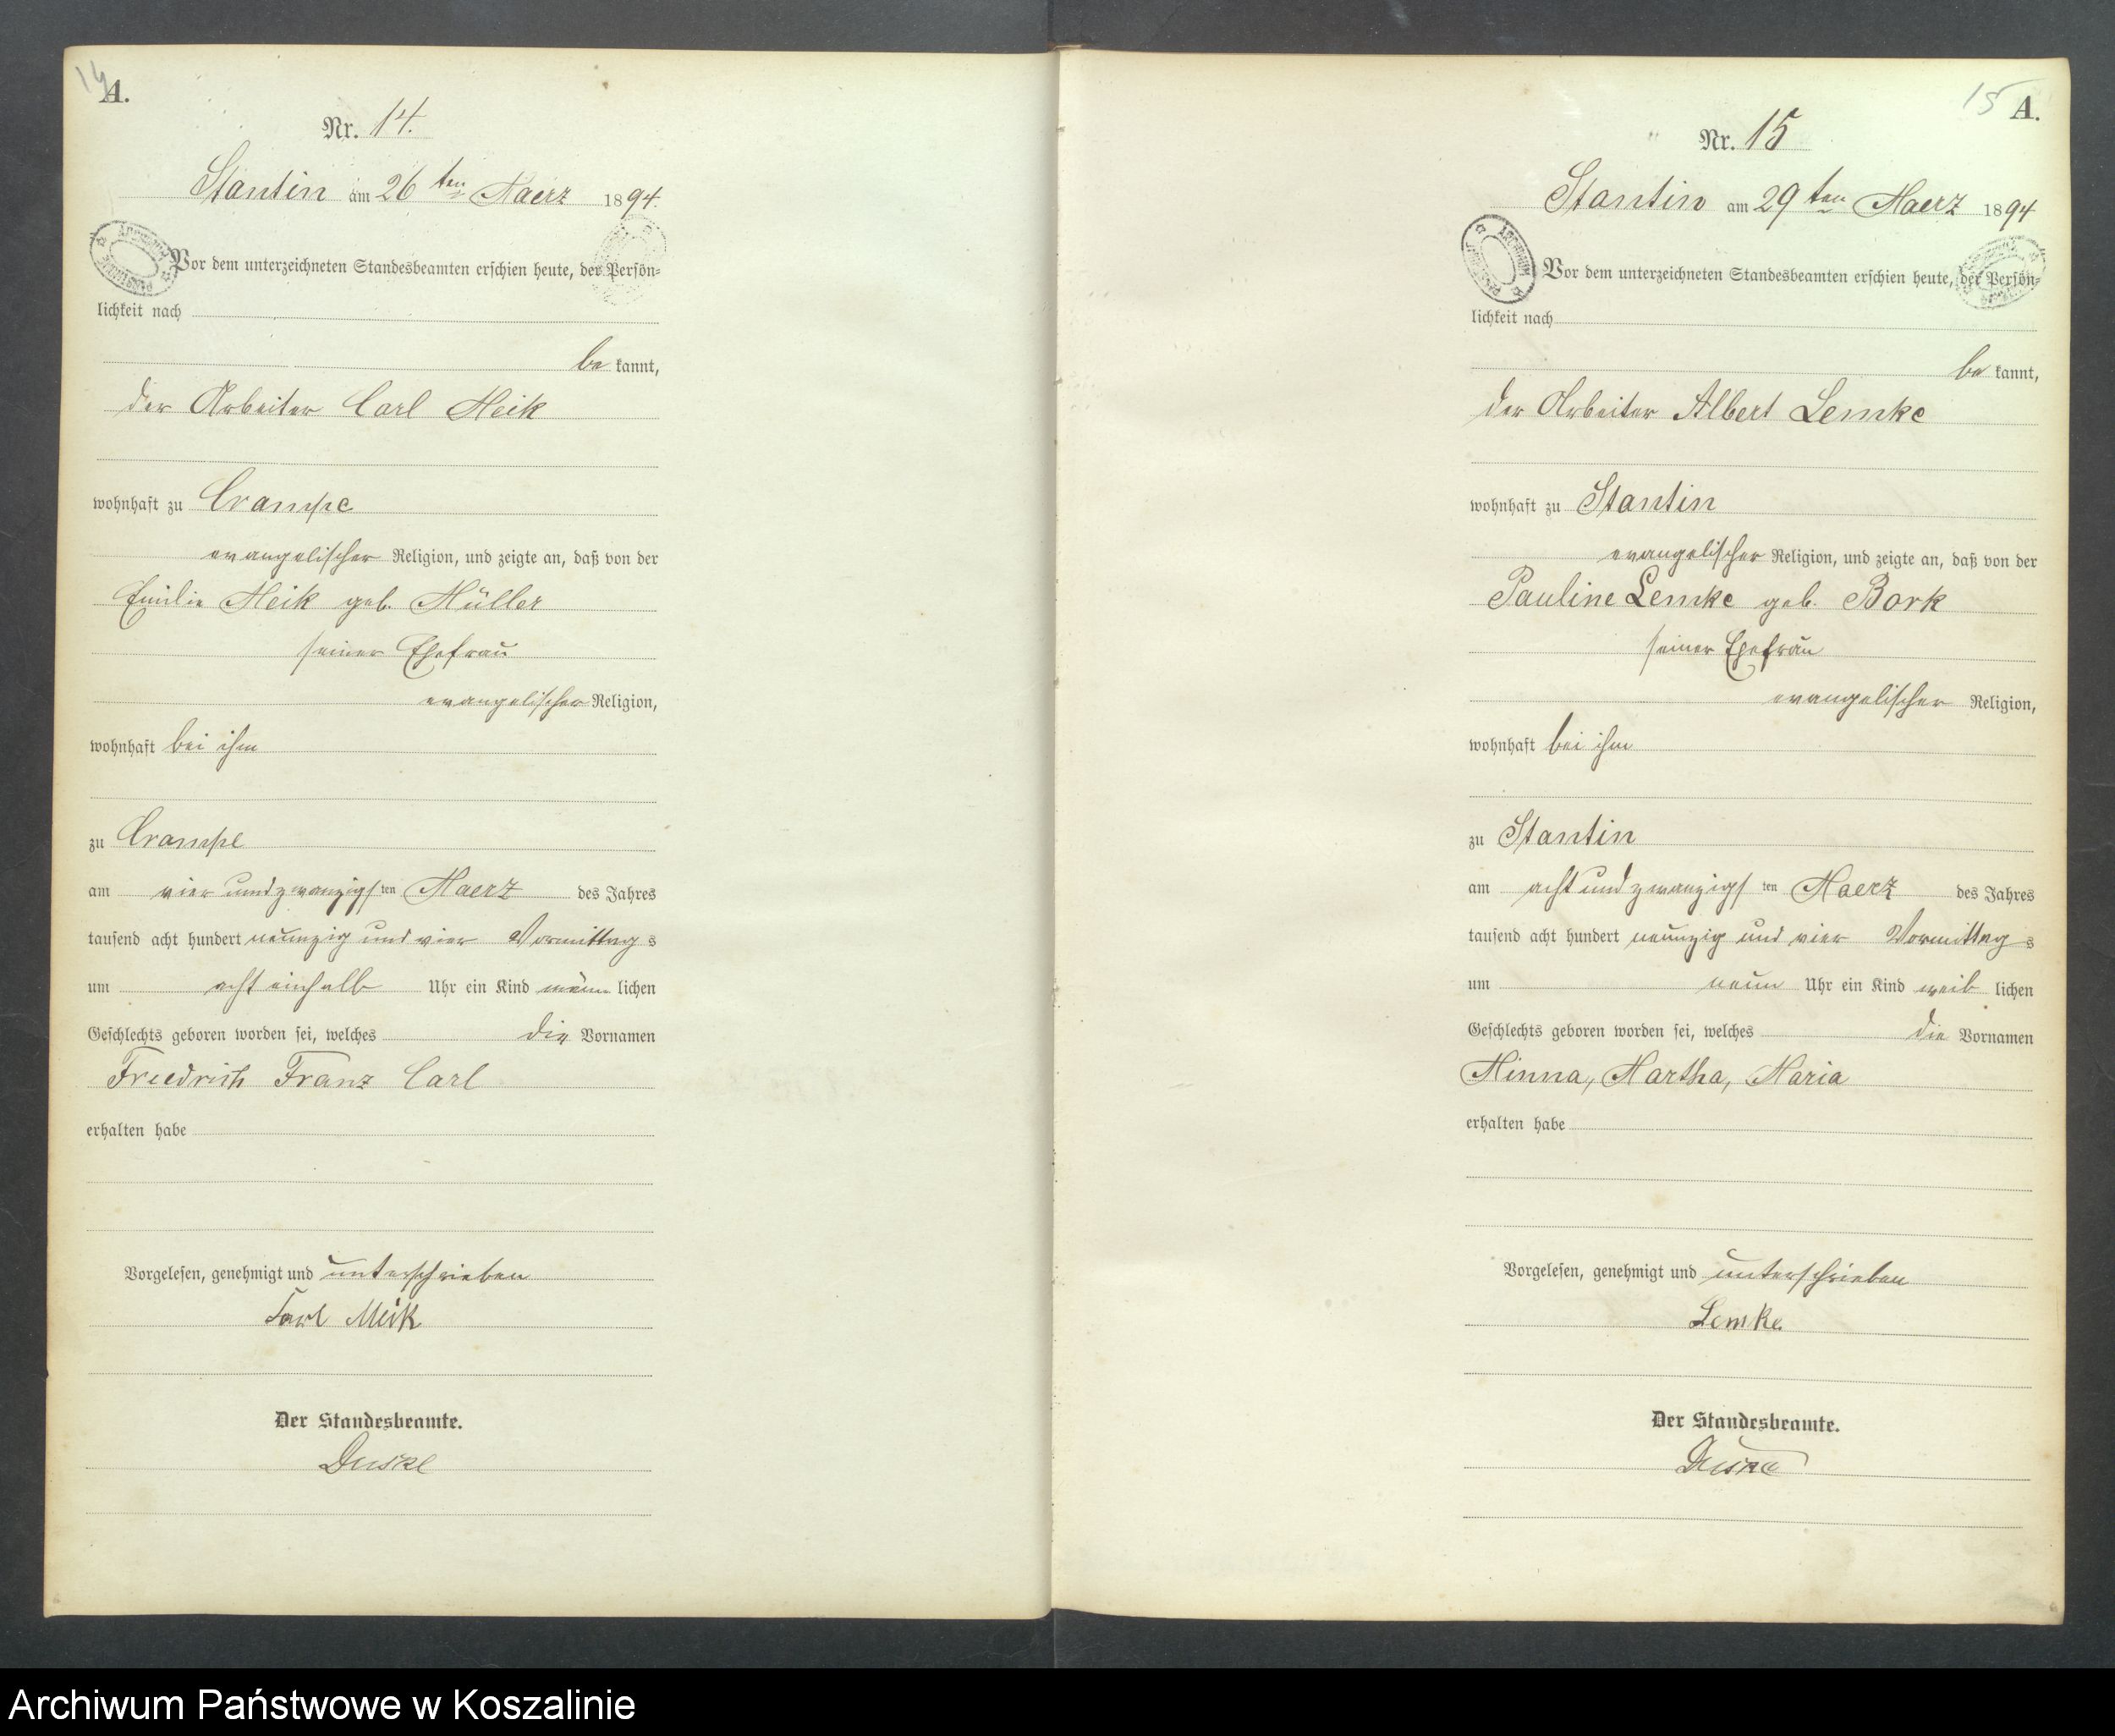 14
A.
Nr. 14.
Stantin am 26 ten Maerz 1894.
Vor dem unterzeichneten Standesbeamten erschien heute, der Persön-
lichkeit nach
be kannt,
der Arbeiter Carl Meik
wohnhaft zu Crampe
evangelischer Religion, und zeigte an, daß von der
Emilie Meik geb. Müller
seiner Ehefrau
evangelischer Religion,
wohnhaft bei ihm
zu Crampe
am vier und zwanzigs ten Maerz des Jahres
tausend acht hundert neunzig und vier Vormittag s
um acht einhalb Uhr ein Kind männ lichen
Geschlechts geboren worden sei, welches die Vornamen
Friedrich Franz Carl
erhalten habe
Vorgelesen, genehmigt und unterschrieben
Carl Meik
Der Standesbeamte.
Duske
15
A.
Nr. 15
Stantin am 29 ten Maerz 1894
Vor dem unterzeichneten Standesbeamten erschien heute, der Persön-
lichkeit nach
be kannt,
der Arbeiter Albert Lemke
wohnhaft zu Stantin
evangelischer Religion, und zeigte an, daß von der
Pauline Lemke geb. Bork
seiner Ehefrau
evangelischer Religion,
wohnhaft bei ihm
zu Stantin
am acht und zwanzigs ten Maerz des Jahres
tausend acht hundert neunzig und vier Vormittag s
um neun Uhr ein Kind weib lichen
Geschlechts geboren worden sei, welches die Vornamen
Minna, Martha, Maria
erhalten habe
Vorgelesen, genehmigt und unterschrieben
Lemke
Der Standesbeamte.
Duske
Archiwum Państwowe w Koszalinie